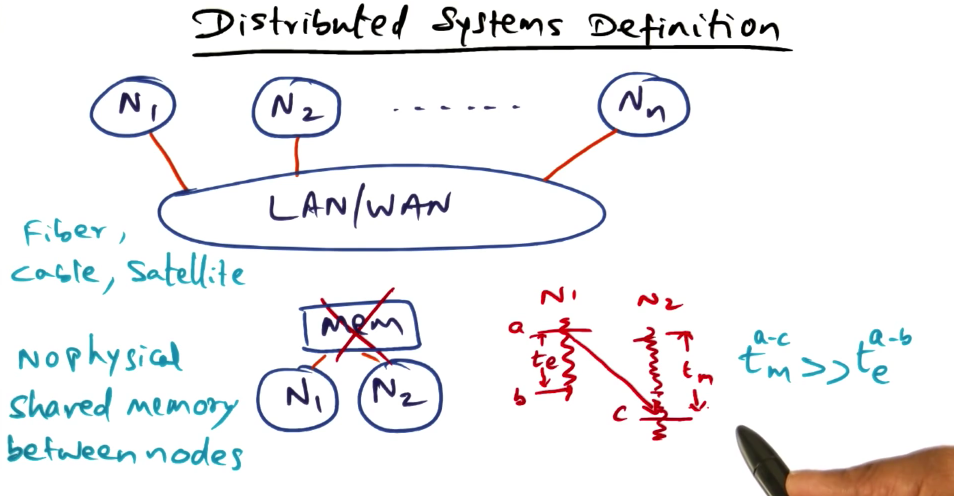 Distributed Systems Definition
N1 N2 ....... Nn
LAN/WAN
Fiber,
Cable, Satellite
Mem
N1 N2
No physical
shared memory
between nodes
N1 N2
a
te
b
c
tm
tm^a-c >> te^a-b